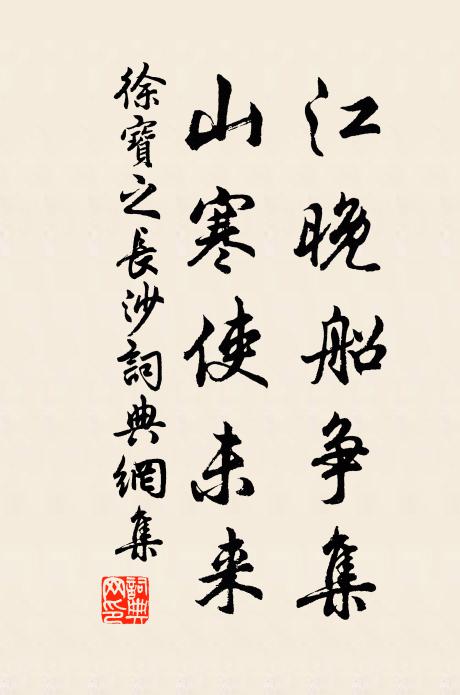 江晚船争集
山寒使未来
徐寶之長沙詞典網集
詞典网印